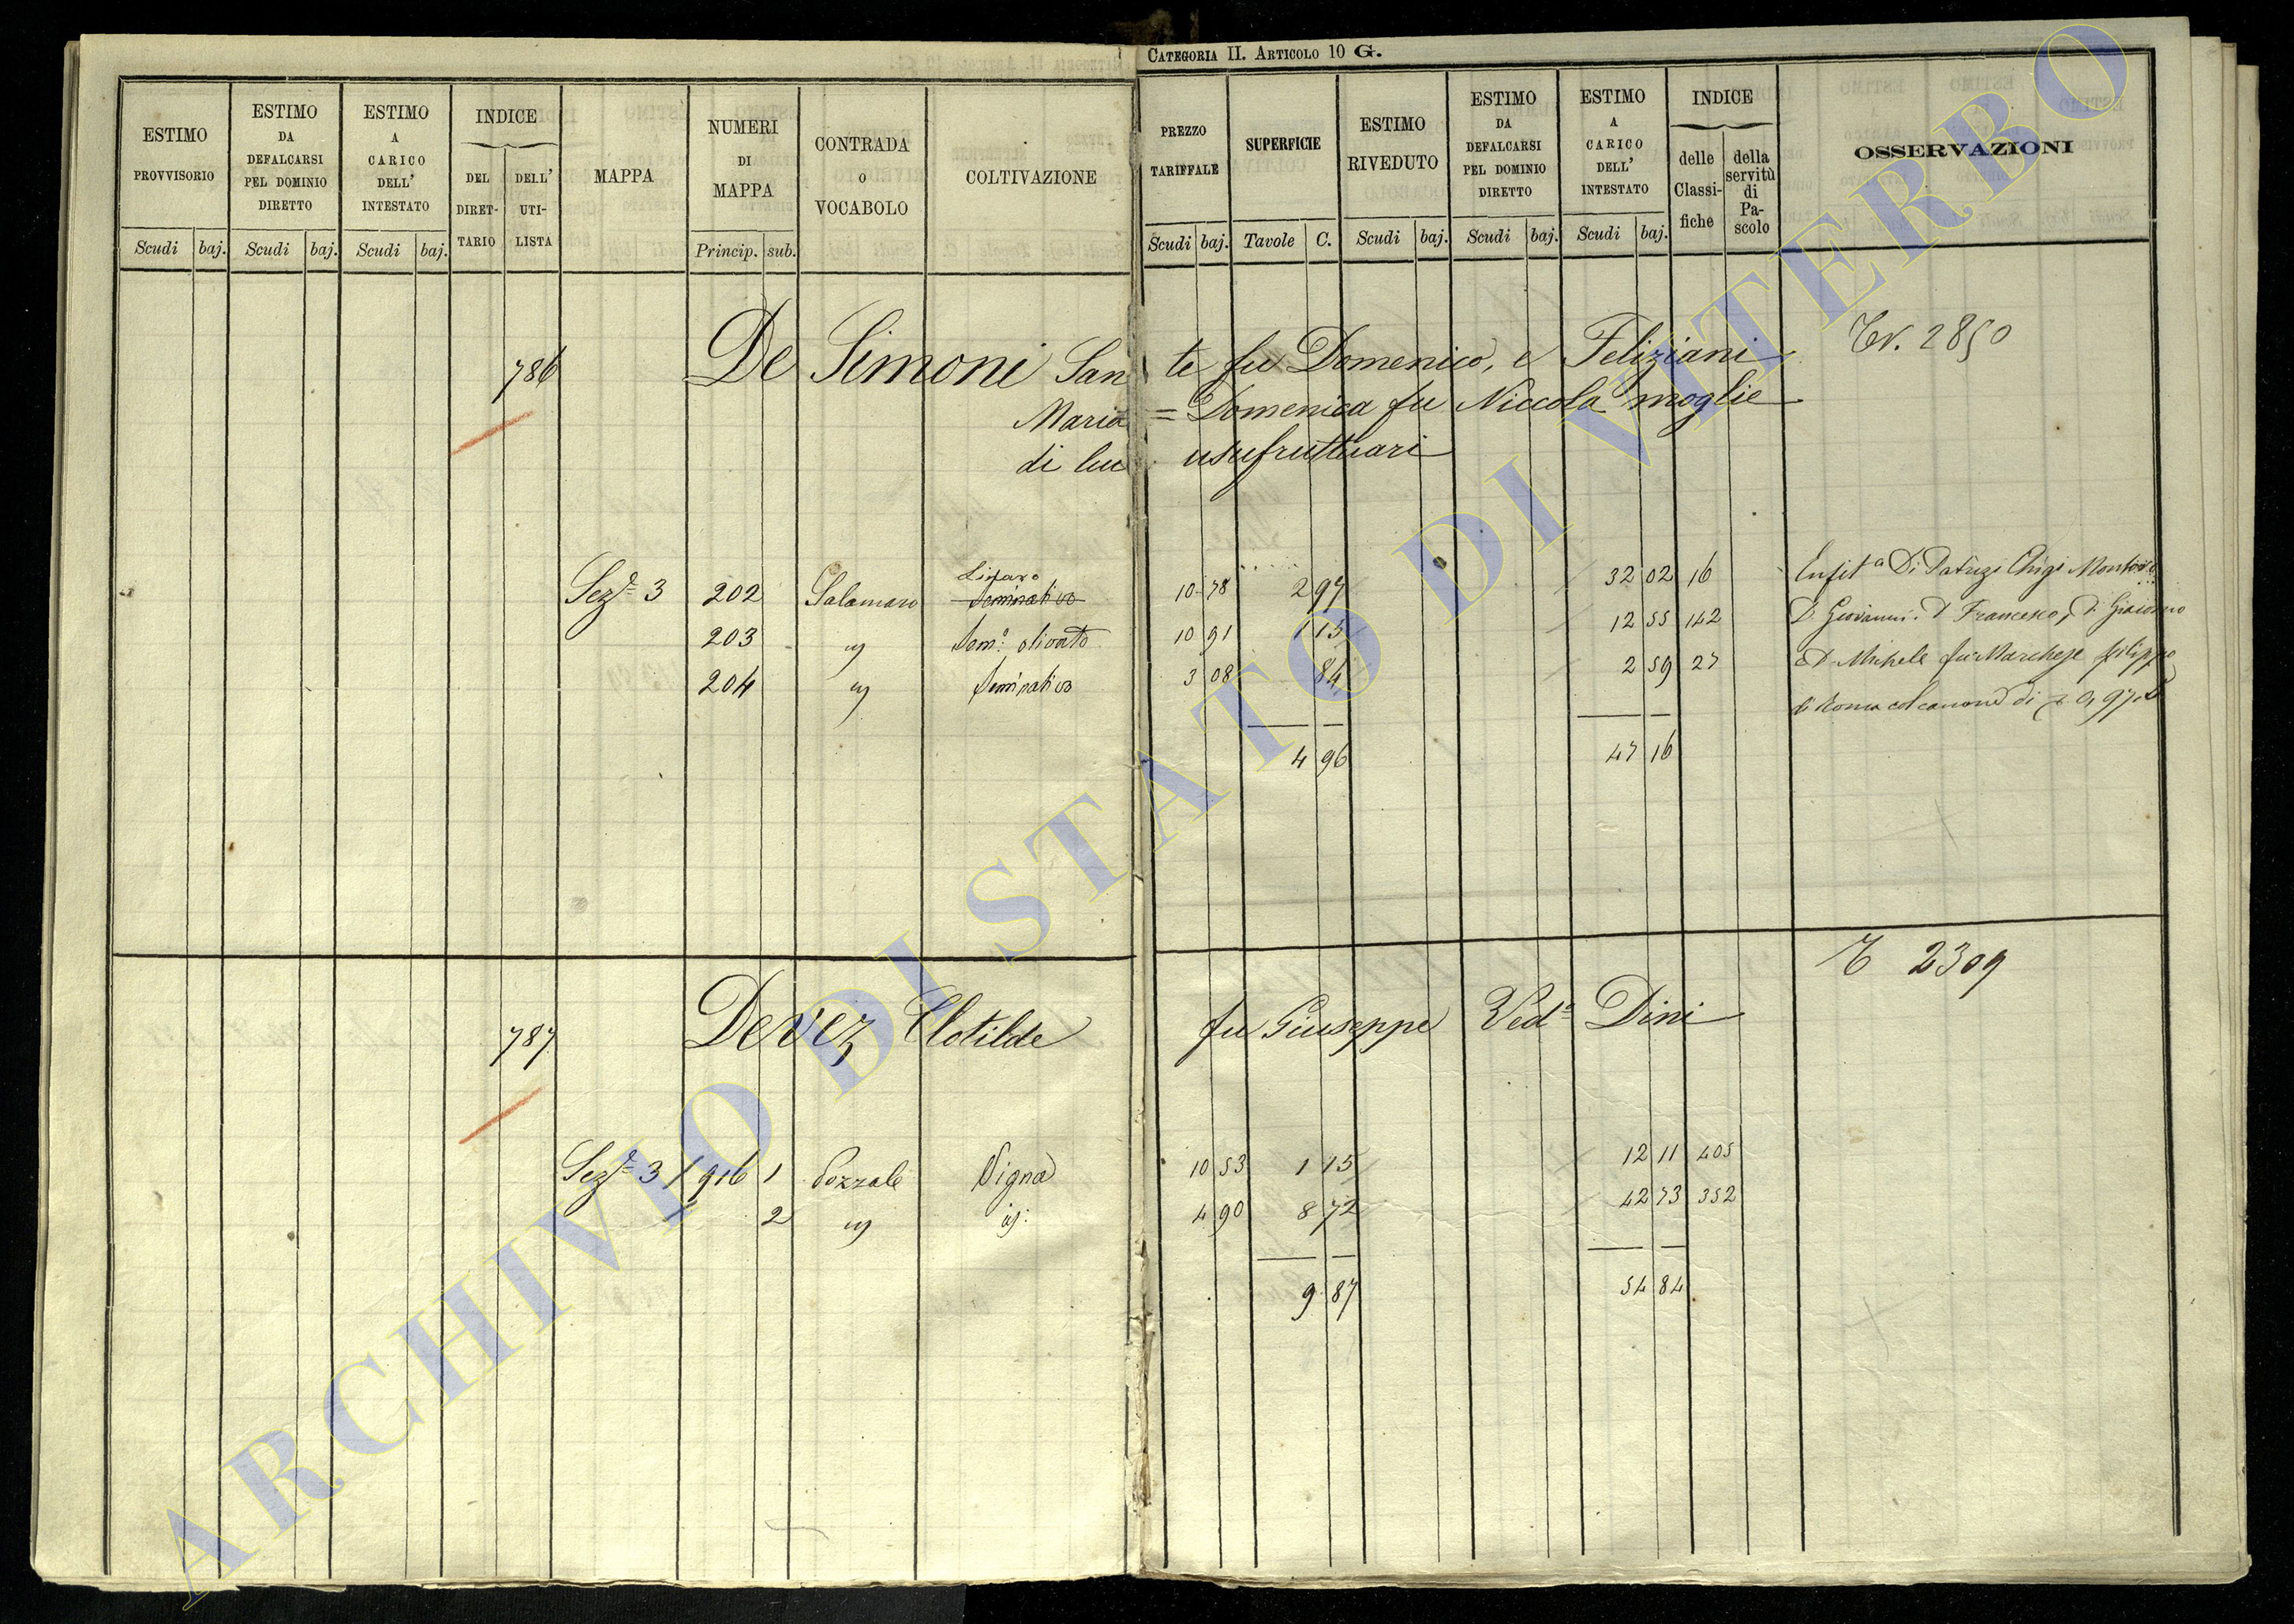 CATEGORIA II. ARTICOLO 10 G.
ESTIMO PROVVISORIO
Scudi baj.
ESTIMO DA DEFALCARSI PEL DOMINIO DIRETTO
Scudi baj.
ESTIMO A CARICO DELL' INTESTATO
Scudi baj.
INDICE
DEL DIRET-TARIO
DELL' UTI-LISTA
MAPPA
NUMERI DI MAPPA
Princip. sub.
CONTRADA O VOCABOLO
COLTIVAZIONE
PREZZO TARIFFALE
Scudi baj.
SUPERFICIE
Tavole C.
ESTIMO RIVEDUTO
Scudi baj.
ESTIMO DA DEFALCARSI PEL DOMINIO DIRETTO
Scudi baj.
ESTIMO A CARICO DELL' INTESTATO
Scudi baj.
INDICE
delle Classi-fiche
della servitù di Pa-scolo
OSSERVAZIONI
786 De Simoni San te fu Domenico, e Feliziani 2850
Maria = Domenica fu Niccola moglie
di lui usufruttuari
Sez.e 3 202 Salamaro Seminativo 10 78 2 97 32 02 16
203 " Sem.o olivato 10 91 1 15 12 55 142 D. Giovanni. D Francesco, D. Giacomo
204 " Seminativo 3 08 84 2 59 27 e D. Michele fu Marchese filippo
4 96 47 16
T 2309
787 Devez Clotilde fu Giuseppe Ved.a Dini
Sez.e 3 916 1 Pozzale Vigna 10 53 1 15 12 11 405
2 " id: 4 90 8 72 42 73 352
9 87 54 84
ARCHIVIO DI STATO DI VITERBO